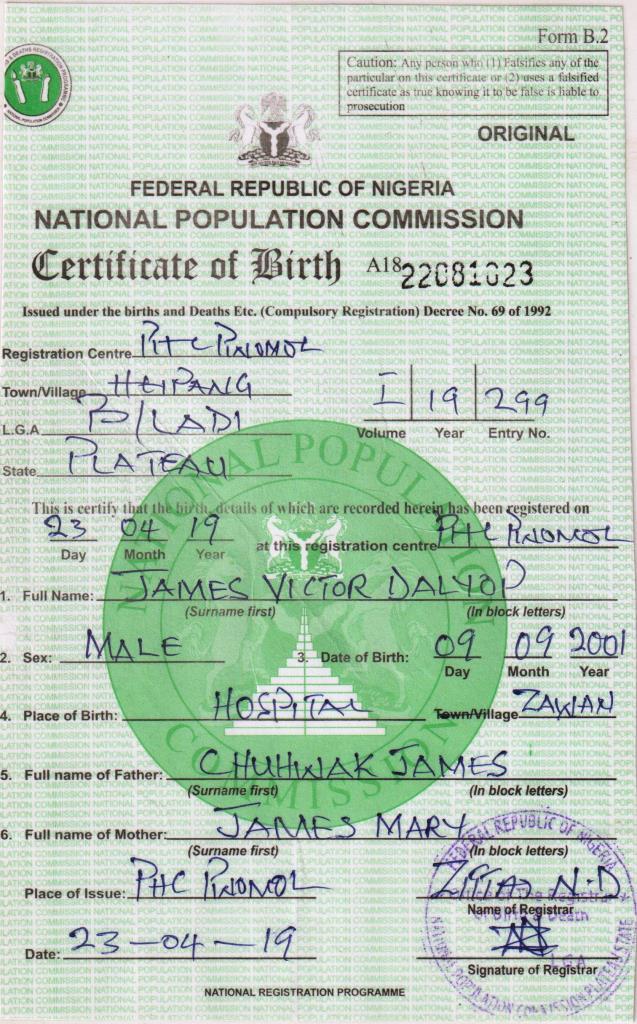 Form B.2
Caution: Any person who (1) Falsifies any of the
particular on this certificate or (2) uses a falsified
certificate as true knowing it to be false is liable to
prosecution
ORIGINAL
FEDERAL REPUBLIC OF NIGERIA
NATIONAL POPULATION COMMISSION
Certificate of Birth A18 22081023
Issued under the births and Deaths Etc. (Compulsory Registration) Decree No. 69 of 1992
Registration Centre PHC PWOMOL
Town/Village HEIPANG
I 19 299
L.G.A B/LADI
Volume Year Entry No.
State PLATEAU
This is certify that the birth, details of which are recorded herein has been registered on
23 04 19 at this registration centre PHC PWOMOL
Day Month Year
1. Full Name: JAMES VICTOR DALYOP
(Surname first) (In block letters)
2. Sex: MALE 3. Date of Birth: 09 09 2001
Day Month Year
4. Place of Birth: HOSPITAL Town/Village ZAWAN
5. Full name of Father: CHUHWAK JAMES
(Surname first) (In block letters)
6. Full name of Mother: JAMES MARY
(Surname first) (In block letters)
Place of Issue: PHC PWOMOL N.D
Name of Registrar
Date: 23-04-19
Signature of Registrar
NATIONAL REGISTRATION PROGRAMME
NATIONAL POPULATION COMMISSION
FEDERAL REPUBLIC OF NIGERIA
NATIONAL POPULATION COMMISSION PLATEAU STATE